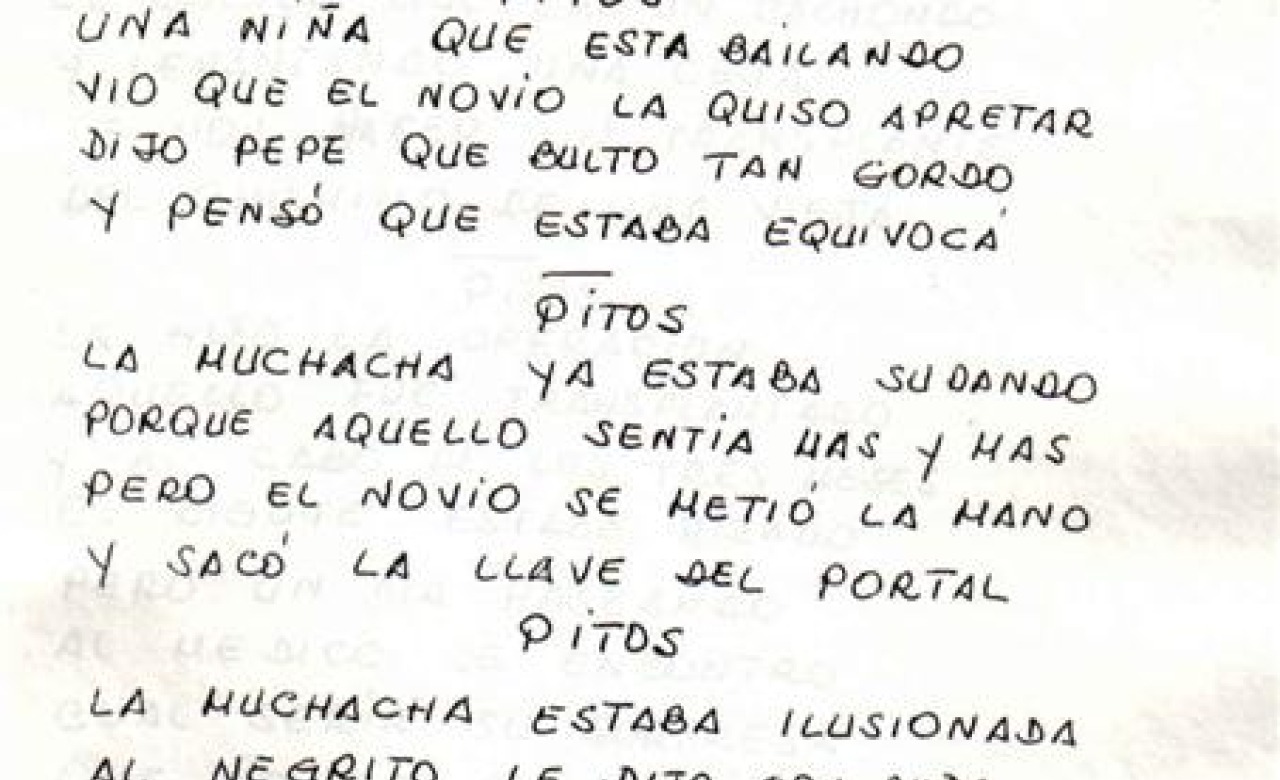 PITOS
UNA NIÑA QUE ESTA BAILANDO
VIO QUE EL NOVIO LA QUISO APRETAR
DIJO PEPE QUE BULTO TAN GORDO
Y PENSÓ QUE ESTABA EQUIVOCÁ
PITOS
LA MUCHACHA YA ESTABA SUDANDO
PORQUE AQUELLO SENTIA MAS Y MAS
PERO EL NOVIO SE METIÓ LA MANO
Y SACÓ LA LLAVE DEL PORTAL
PITOS
LA MUCHACHA ESTABA ILUSIONADA
AL NEGRITO LE DIJO